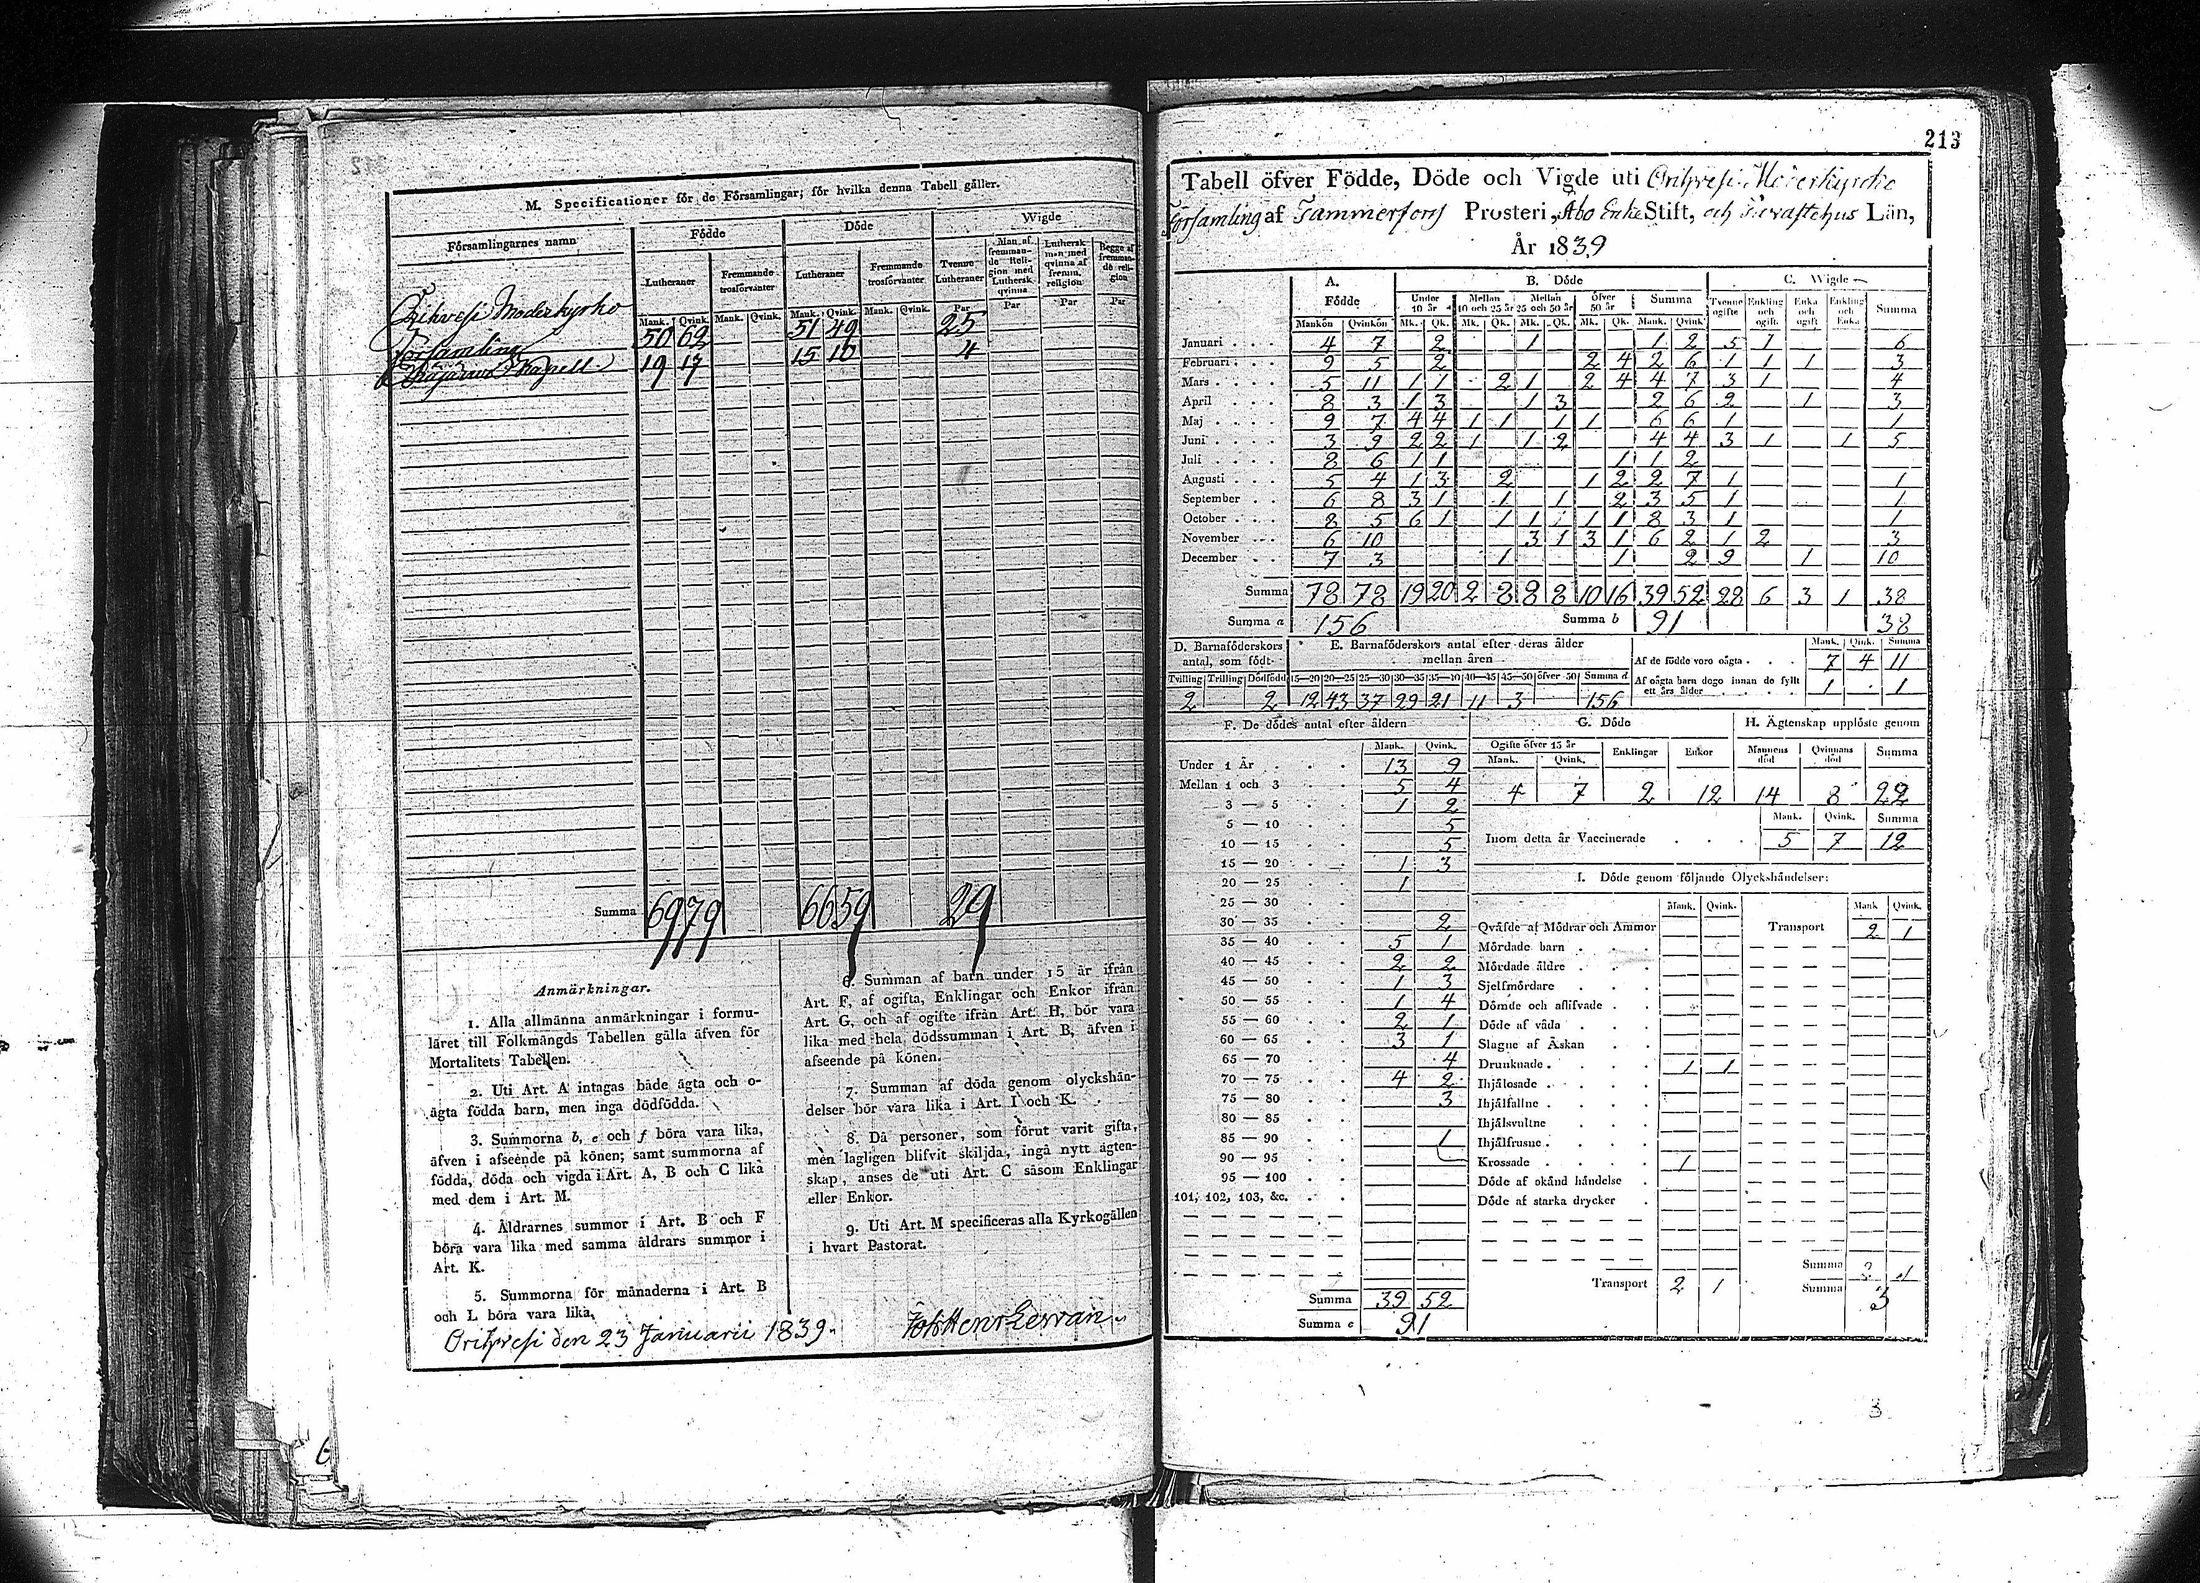 M. Specificationer för de Församlingar, för hvilka denna Tabell gäller.
Församlingarnes namn Födde Döde Wigde
Lutheraner Fremmande trosförvanter Lutheraner Fremmande trosförvanter Tvenne Lutheraner Man af fremmande Religion med Luthersk qvinna Luthersk man med qvinna af fremm. religion Begge af fremmande religion
Mank. Qvink. Mank. Qvink. Mank. Qvink. Mank. Qvink. Par Par Par Par
Orihvesi Moderkyrko
Församling 50 62 51 49 25
Kapell 19 17 15 10 4
Summa 69 79 66 59 29
Anmärkningar.
1. Alla allmänna anmärkningar i formu-
läret till Folkmängds Tabellen gälla äfven för
Mortalitets Tabellen.
2. Uti Art. A intagas både ägta och o-
ägta födda barn, men inga dödfödda.
3. Summorna b, e och f böra vara lika,
äfven i afseende på könen; samt summorna af
födda, döda och vigda i Art. A, B och C lika
med dem i Art. M.
4. Åldrarnes summor i Art. B och F
böra vara lika med samma åldrars summor i
Art. K.
5. Summorna för månaderna i Art. B
och L böra vara lika.
6. Summan af barn under 15 år ifrån
Art. F, af ogifta, Enklingar och Enkor ifrån
Art. G, och af ogifte ifrån Art. H, bör vara
lika med hela dödssumman i Art. B, äfven i
afseende på könen.
7. Summan af döda genom olyckshän-
delser bör vara lika i Art. I och K.
8. Då personer, som förut varit gifta,
men lagligen blifvit skiljda, ingå nytt ägten-
skap, anses de uti Art. C såsom Enklingar
eller Enkor.
9. Uti Art. M specificeras alla Kyrkogällen
i hvart Pastorat.
Orihvesi den 23 Januarii 1839.
213
Tabell öfver Födde, Döde och Vigde uti Orihvesi Moderkyrko
Församling af Tammerfors Prosteri, Åbo Erke Stift, och Tavastehus Län,
År 1839
A. Födde B. Döde C. Wigde
Under 10 år Mellan 10 och 25 år Mellan 25 och 50 år Öfver 50 år Summa Tvenne ogifte Enkling och ogift. Enka och ogift Enkling och Enka Summa
Mankön Qvinkön Mk. Qk. Mk. Qk. Mk. Qk. Mk. Qk. Mank. Qvink
Januari 4 7 2 1 1 2 5 1 6
Februari 9 5 2 2 4 2 6 1 1 1 3
Mars 5 11 1 1 2 1 2 4 4 7 3 1 4
April 8 3 1 3 1 3 2 6 2 1 3
Maj 9 7 4 4 1 1 1 1 6 6 1 1
Juni 3 9 2 2 1 1 2 4 4 3 1 1 5
Juli 8 6 1 1 1 1 2
Augusti 5 4 1 3 2 1 2 2 7 1 1
September 6 8 3 1 1 1 2 3 5 1 1
October 8 5 6 1 1 1 1 1 8 3 1 1
November 6 10 3 1 3 1 6 2 1 2 3
December 7 3 1 1 2 9 1 10
Summa 78 78 19 20 2 8 8 8 10 16 39 52 28 6 3 1 38
Summa a 156 Summa b 91 38
D. Barnaföderskors antal, som födt
Tvilling Trilling Dödfödd
2 2
E. Barnaföderskors antal efter deras ålder mellan åren
15—20 20—25 25—30 30—35 35—40 40—45 45—50 öfver 50 Summa d
12 43 37 29 21 11 3 156
Mank. Qink. Summa
Af de födde voro oägta 7 4 11
Af oägta barn dogo innan de fyllt ett års ålder 1 1
F. De dödes antal efter åldern
Mank. Qvink.
Under 1 År 13 9
Mellan 1 och 3 5 4
3 — 5 1 2
5 — 10 5
10 — 15 5
15 — 20 1 3
20 — 25 1
25 — 30
30 — 35 2
35 — 40 5 1
40 — 45 2 2
45 — 50 1 3
50 — 55 1 4
55 — 60 2 1
60 — 65 3 1
65 — 70 4
70 — 75 4 2
75 — 80 3
80 — 85
85 — 90 1
90 — 95
95 — 100
101, 102, 103, &c.
Summa 39 52
Summa e 91
G. Döde
Ogifte öfver 15 år Enklingar Enkor
Mank. Qvink.
4 7 2 12
H. Ägtenskap upplöste genom
Mannens död Qvinnans död Summa
14 8 22
Mank. Qvink. Summa
Inom detta år Vaccinerade 5 7 12
I. Döde genom följande Olyckshändelser:
Mank. Qvink. Mank Qvink.
Qväfde af Mödrar och Ammor Transport 2 1
Mördade barn
Mördade äldre
Sjelfmördare
Dömde och aflifvade
Döde af våda
Slagne af Åskan
Drunknade 1 1
Ihjälosade
Ihjälfallne
Ihjälsvultne
Ihjälfrusne
Krossade 1
Döde af okänd händelse
Döde af starka drycker
Transport 2 1
Summa 2 1
Summa 3
3